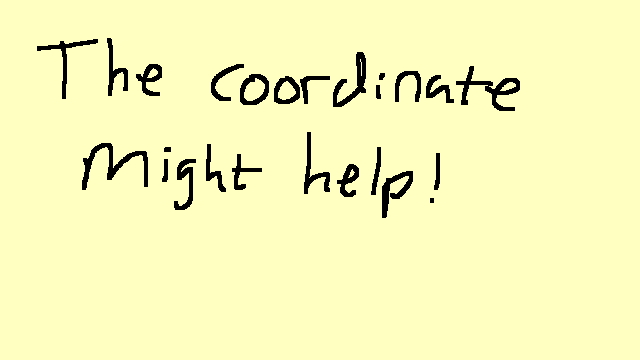 The coordinate
Might help!